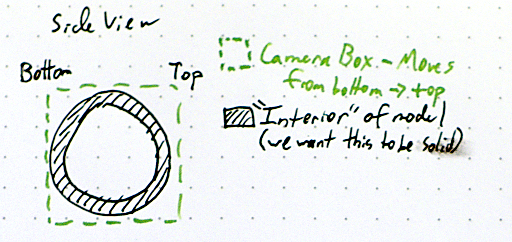 Side View
Bottom
Top
Camera Box - Moves
from bottom → top
"Interior" of model
(we want this to be solid)